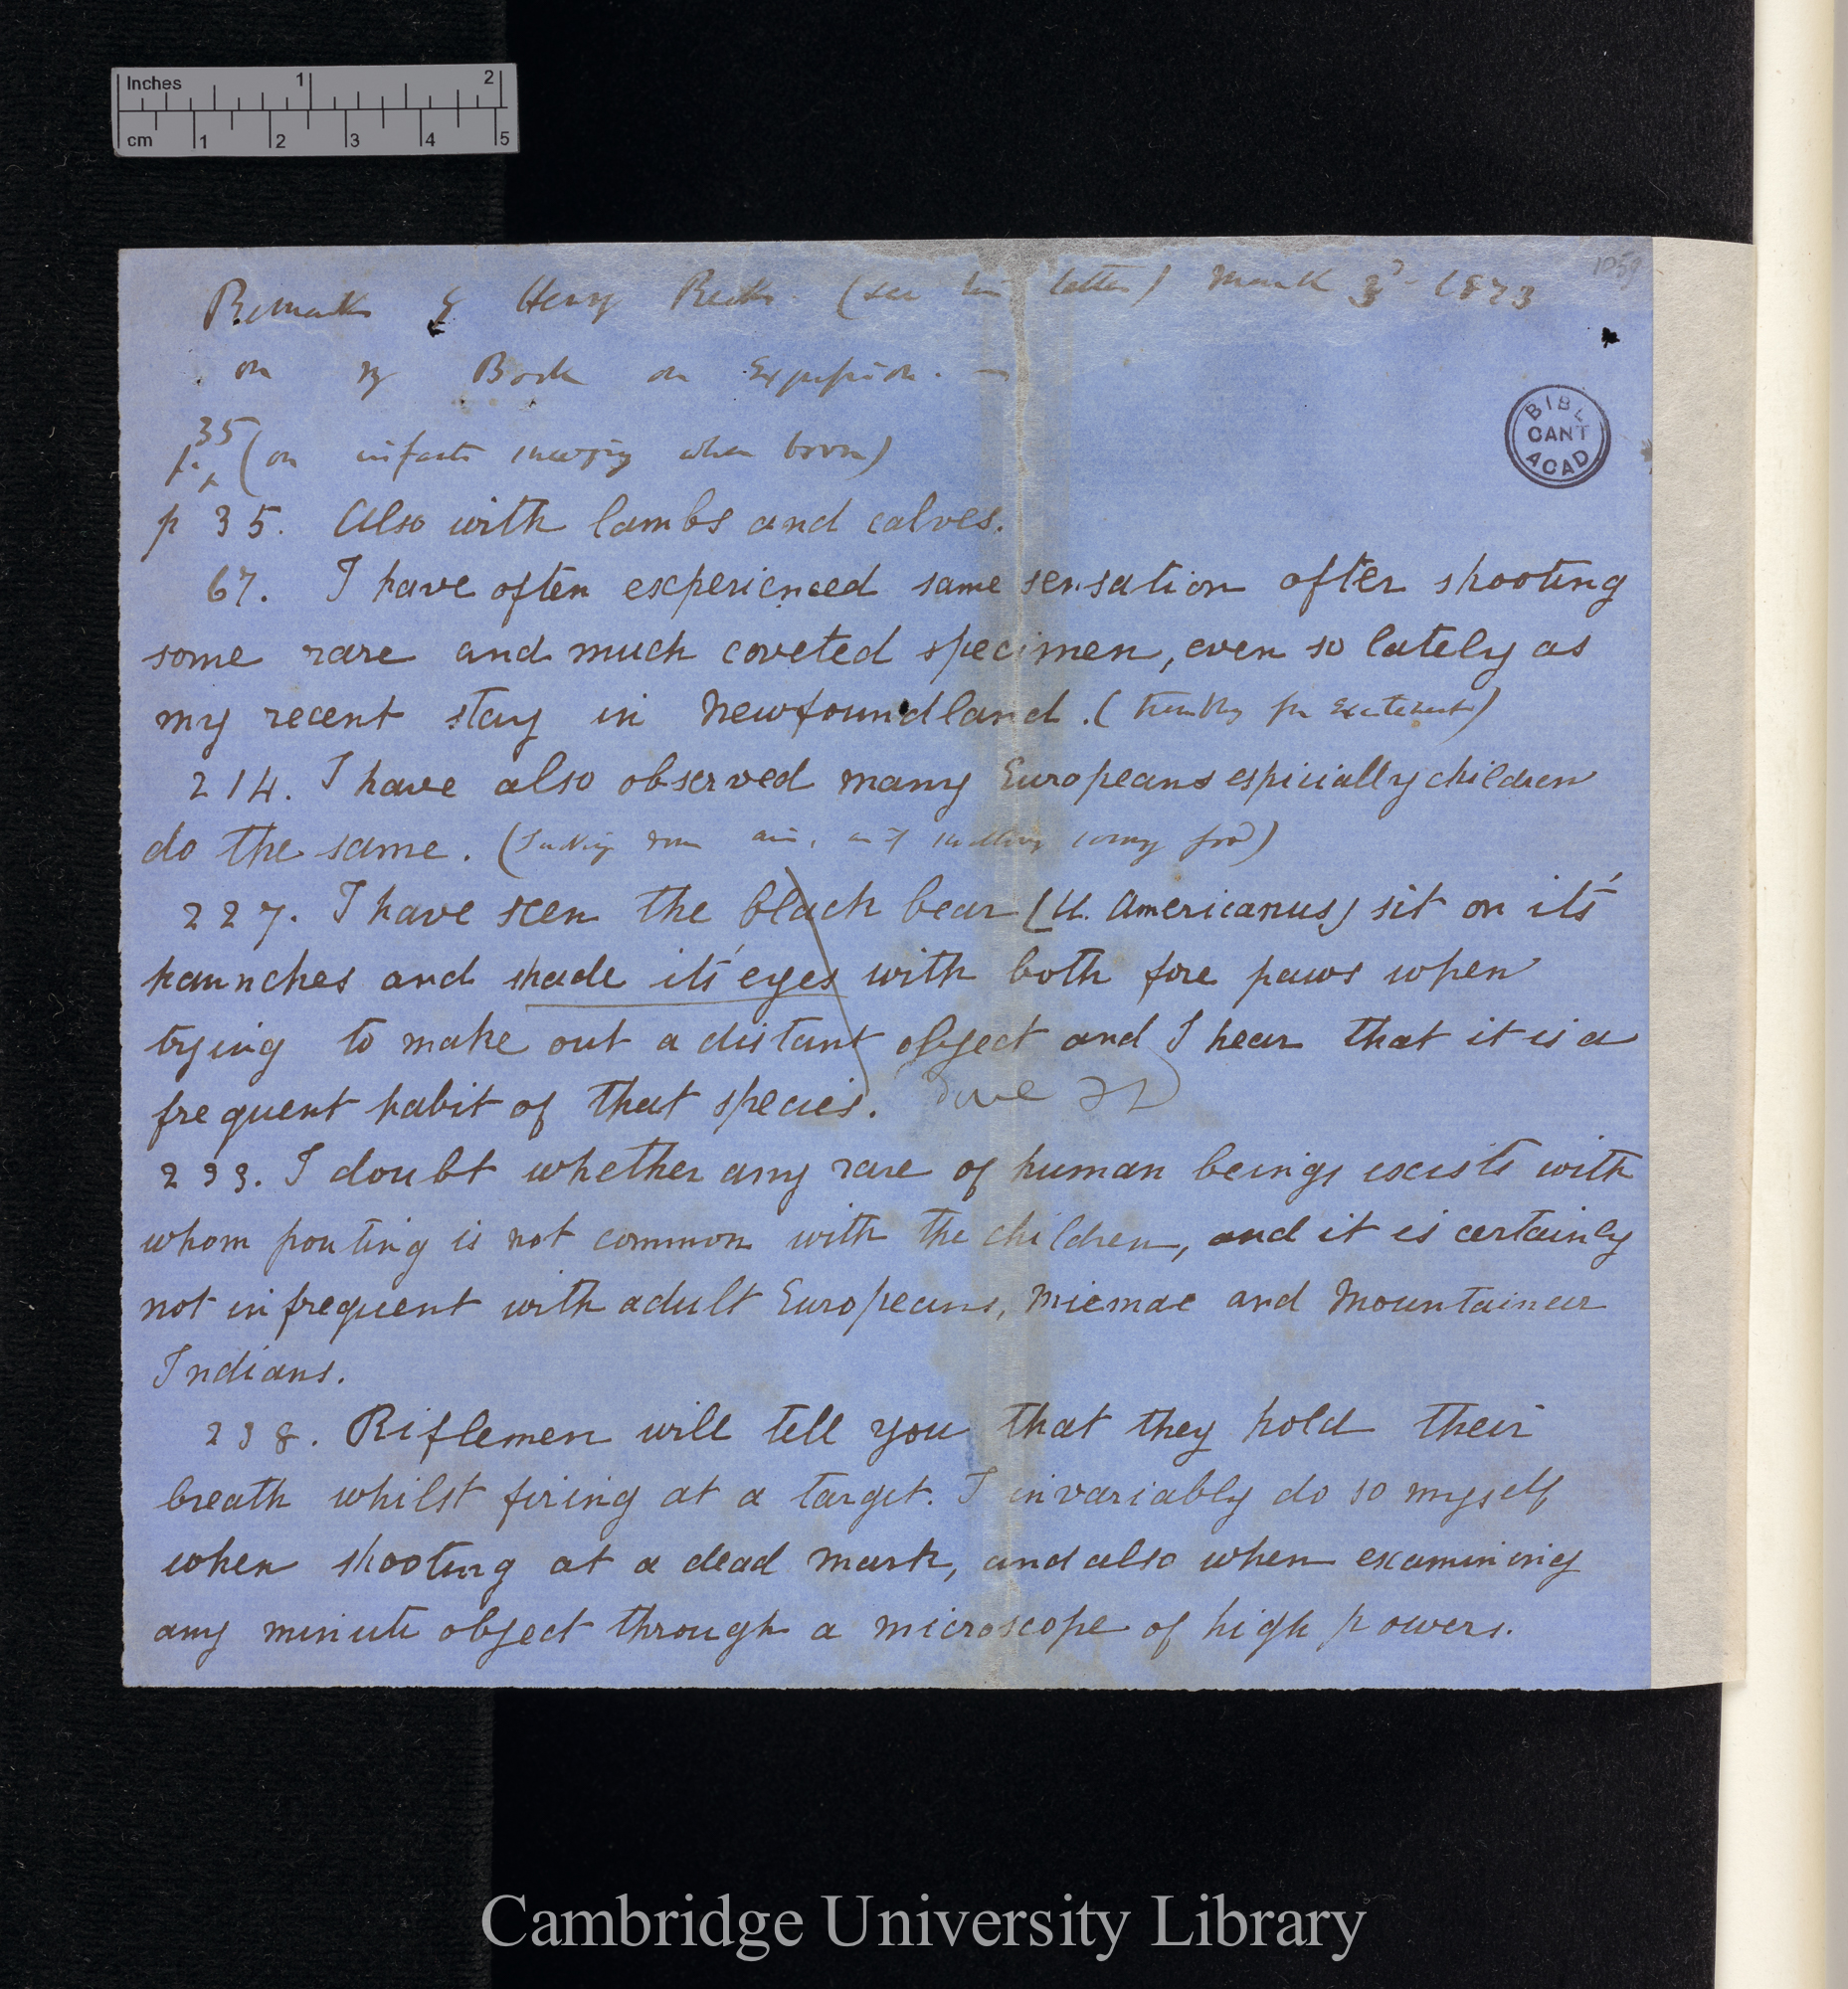 Inches 1 2
cm 1 2 3 4 5
1059
Remarks by Henry Reeks (see his letter) March 3d 1873
on my Book on Expression. —
BIBL
CANT
ACAD
p. 35 (on infants sneezing when born)
p 35. Also with lambs and calves.
67. I have often experienced same sensation after shooting
some rare and much coveted specimen, even so lately as
my recent stay in Newfoundland. (trembling from excitement)
214. I have also observed many Europeans espicially children
do the same. (sucking in air, as if smelling food)
227. I have seen the black bear (U. Americanus) sit on it's
haunches and shade it's eyes with both fore paws when
trying to make out a distant object and I hear that it is a
frequent habit of that species.
233. I doubt whether any race of human beings exists with
whom pouting is not common with the children, and it is certainly
not infrequent with adult Europeans, Micmac and Mountaineer
Indians.
238. Riflemen will tell you that they hold their
breath whilst firing at a target. I invariably do so myself
when shooting at a dead mark, and also when examining
any minute object through a microscope of high powers.
Cambridge University Library